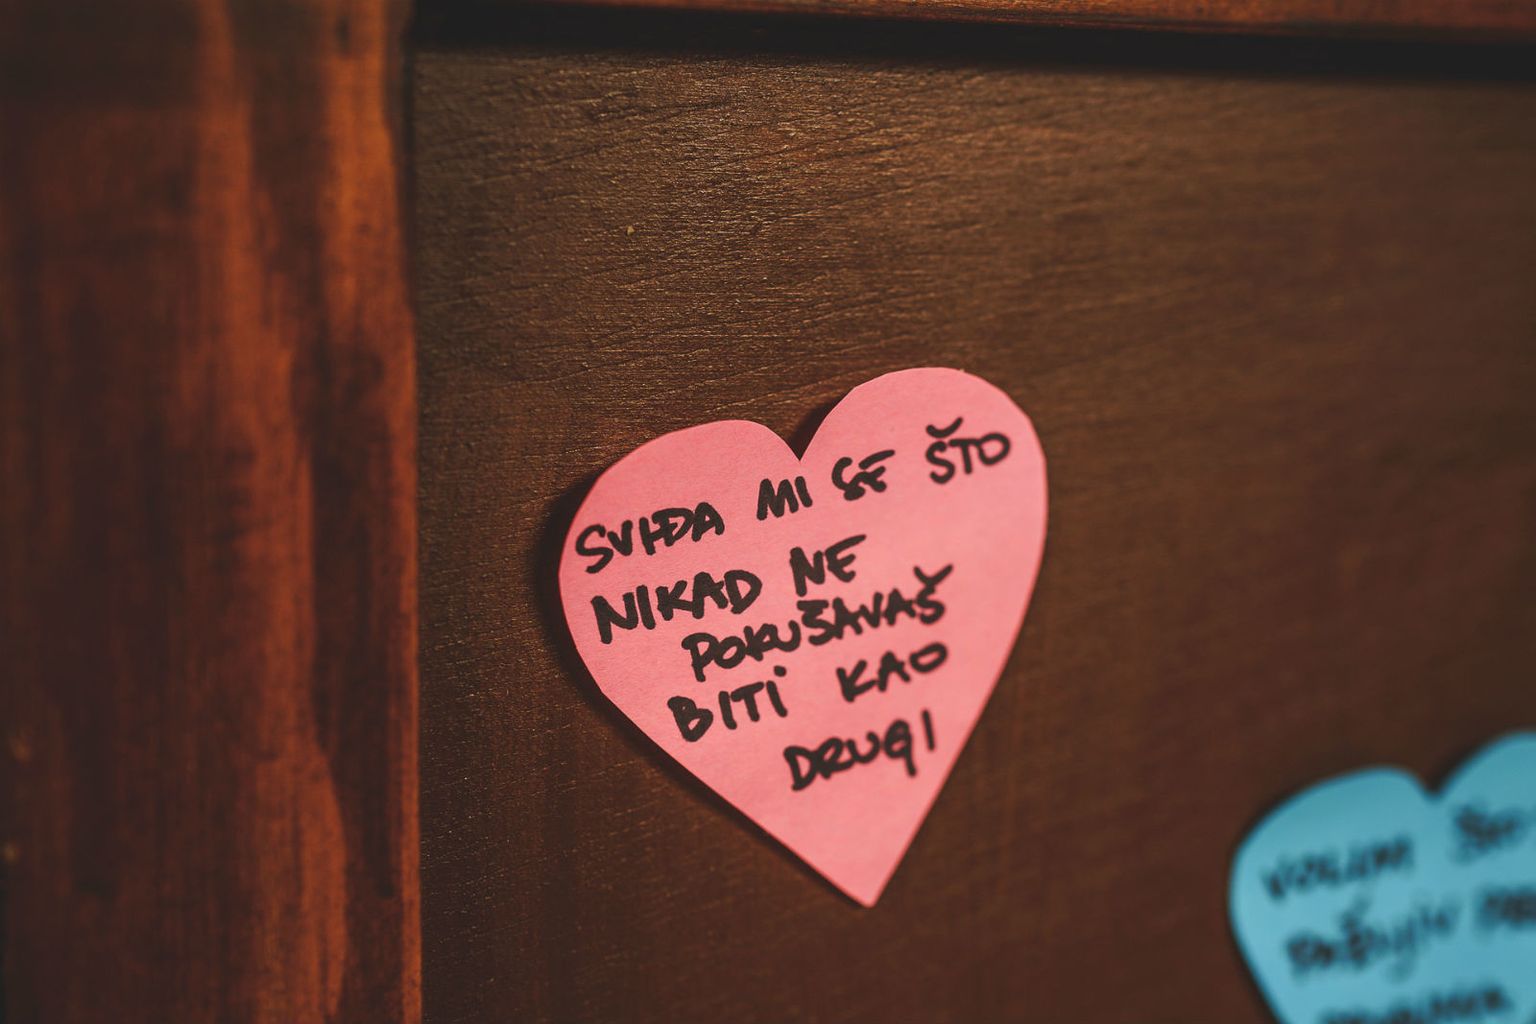 SVIĐA MI SE ŠTO
NIKAD NE
POKUŠAVAŠ
BITI KAO
DRUGI
VOLIM ŠTO